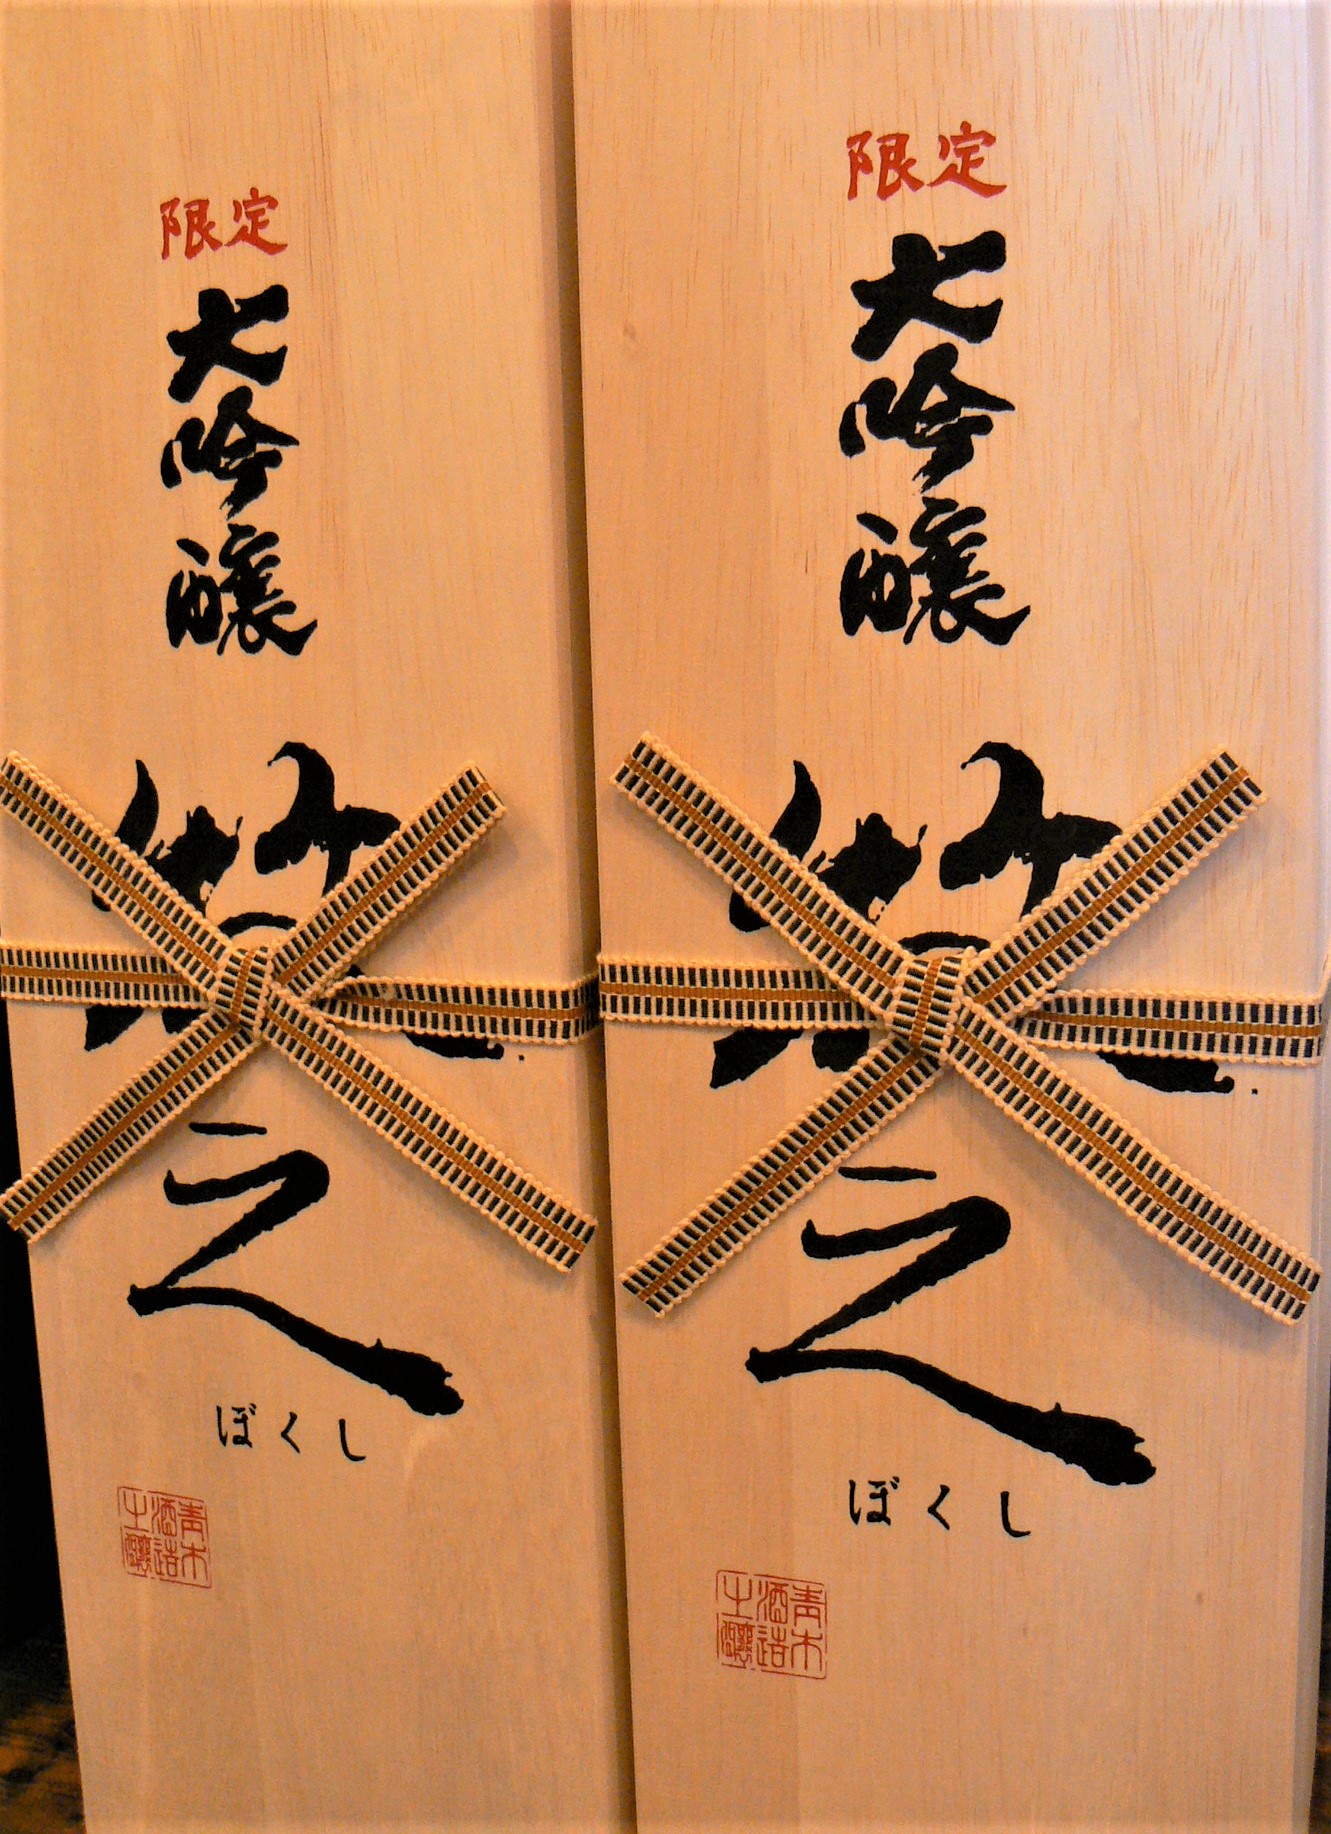 限定
大吟醸
牧之
ぼくし
青木
酒造
限定
大吟醸
牧之
ぼくし
青木
酒造